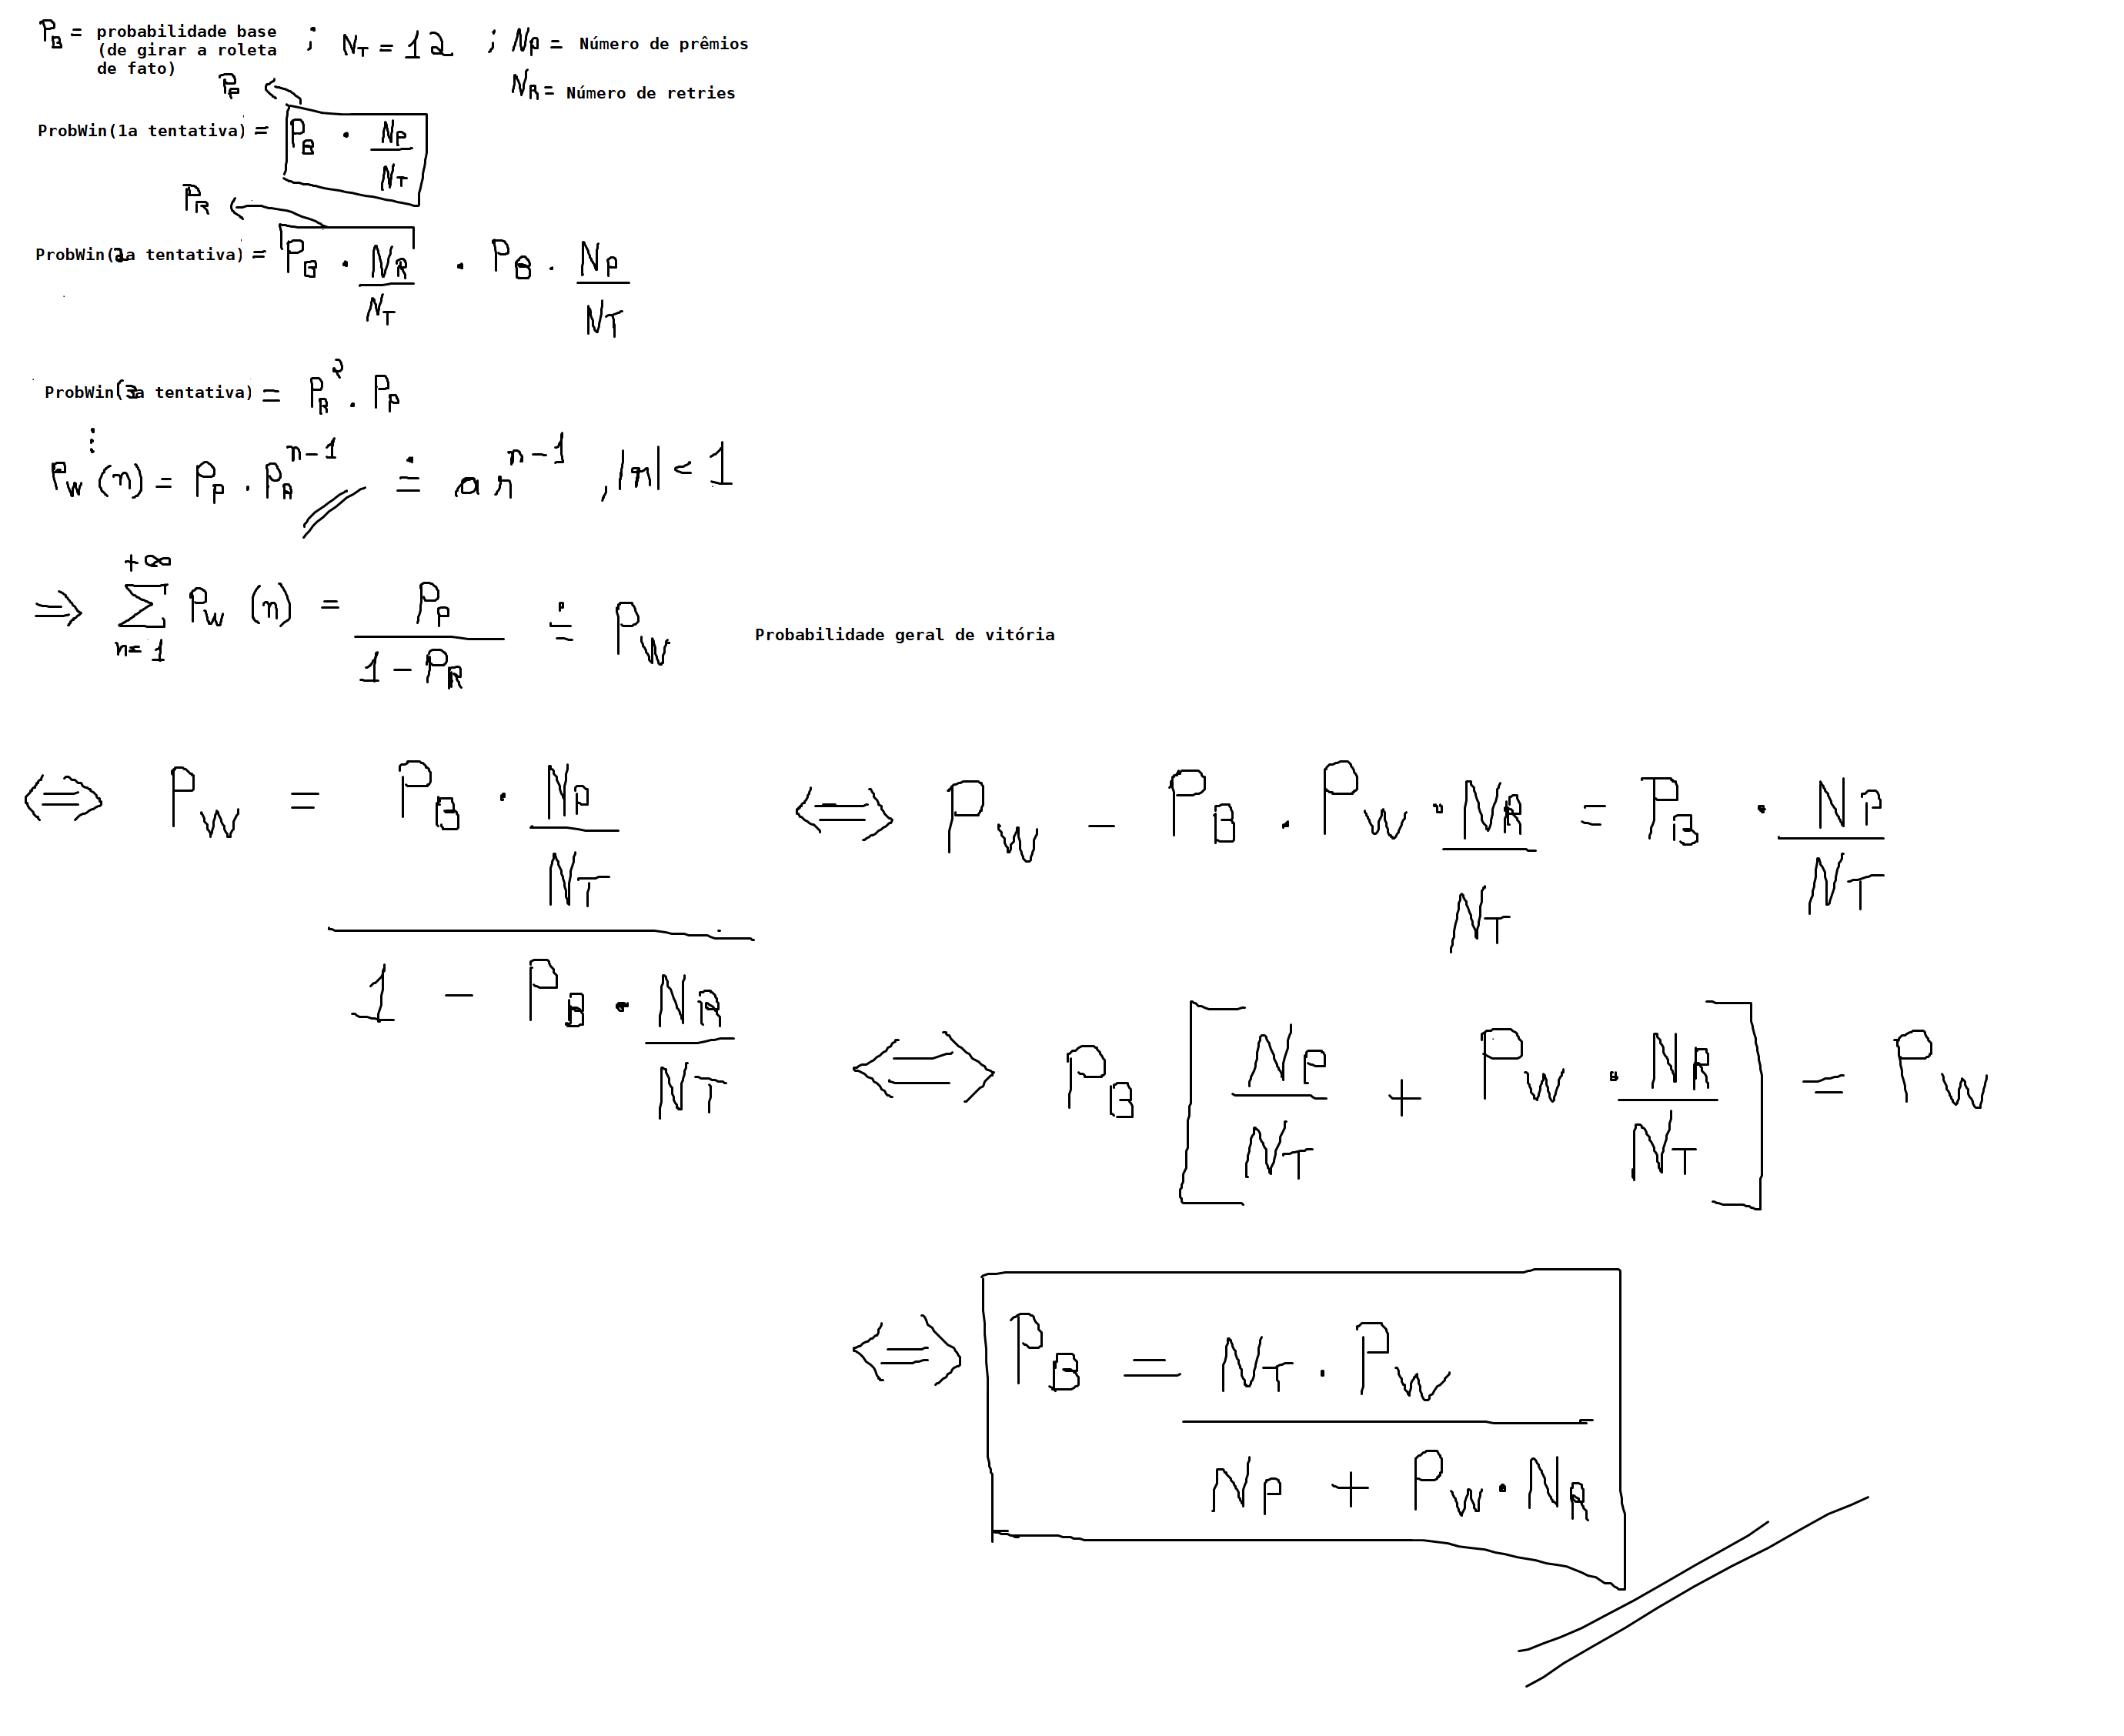 P_B = probabilidade base ; N_T = 12 ; N_P = Número de prêmios
(de girar a roleta
de fato)
N_R = Número de retries
P_P
ProbWin(1a tentativa) = P_B · N_P / N_T
P_R
ProbWin(2a tentativa) = P_B · N_R / N_T · P_B · N_P / N_T
ProbWin(3a tentativa) = P_R^2 · P_P
⋮
P_W (n) = P_P · P_R^(n-1) ≐ a r^(n-1) , |r| < 1
⇒ ∑_(n=1)^(+∞) P_W (n) = P_P / (1 - P_R) ≐ P_W Probabilidade geral de vitória
⇔ P_W = (P_B · N_P / N_T) / (1 - P_B · N_R / N_T) ⇔ P_W - P_B · P_W · N_R / N_T = P_B · N_P / N_T
⇔ P_B [ N_P / N_T + P_W · N_R / N_T ] = P_W
⇔ P_B = (N_T · P_W) / (N_P + P_W · N_R)